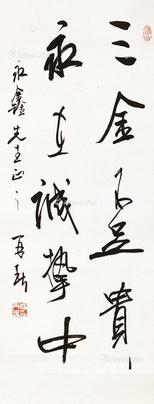 三金不足貴
永在誠摯中
永鑫先生正之